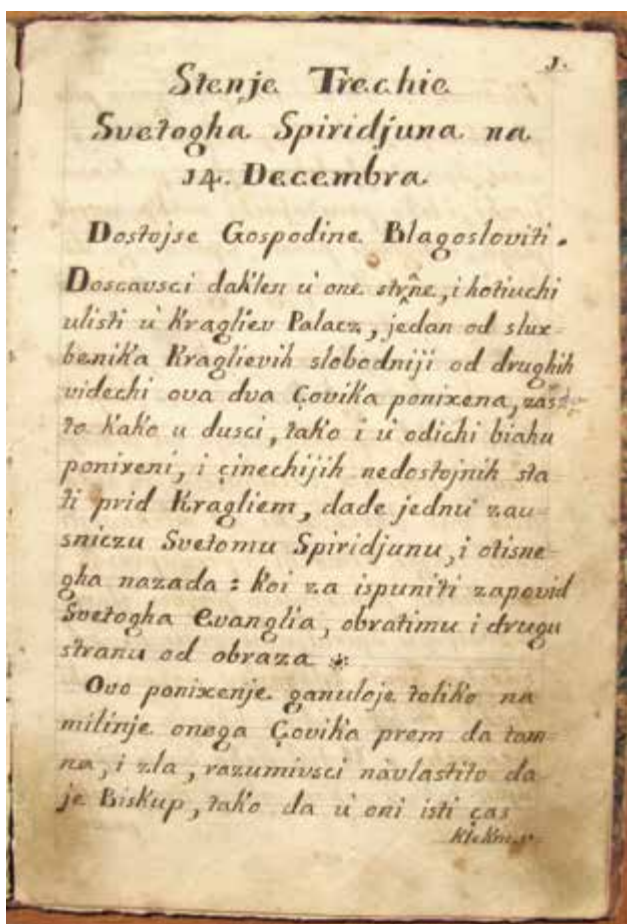 1.
Stenje Trechie
Svetogha Spiridjuna na
14. Decembra
Dostojse Gospodine Blagosloviti.
Doscavsci daklen ù one strn̂e, i hotiuchi
ulisti ù Kragliev Palacz, jedan od slux-
benika Kraglievih slobodniji od drughih
videchi ova dva Çovika ponixena, zasc-
to kako u dusci, tako i ù odichi biahu
ponixeni, i çinechijih nedostojnih sta
ti prid Kragliem, dade jednu zau-
sniczu Svetomu Spiridjunu, i otisne
gha nazada : koi za ispuniti zapovid
Svetogha Evanglia, obratimu i drugu
stranu od obraza
Ovo ponixenje ganuloje toliko na
milinje onega Çovika prem da tam-
na, i zla, razumivsci navlastito da
je Biskup, tako da ù oni isti ças